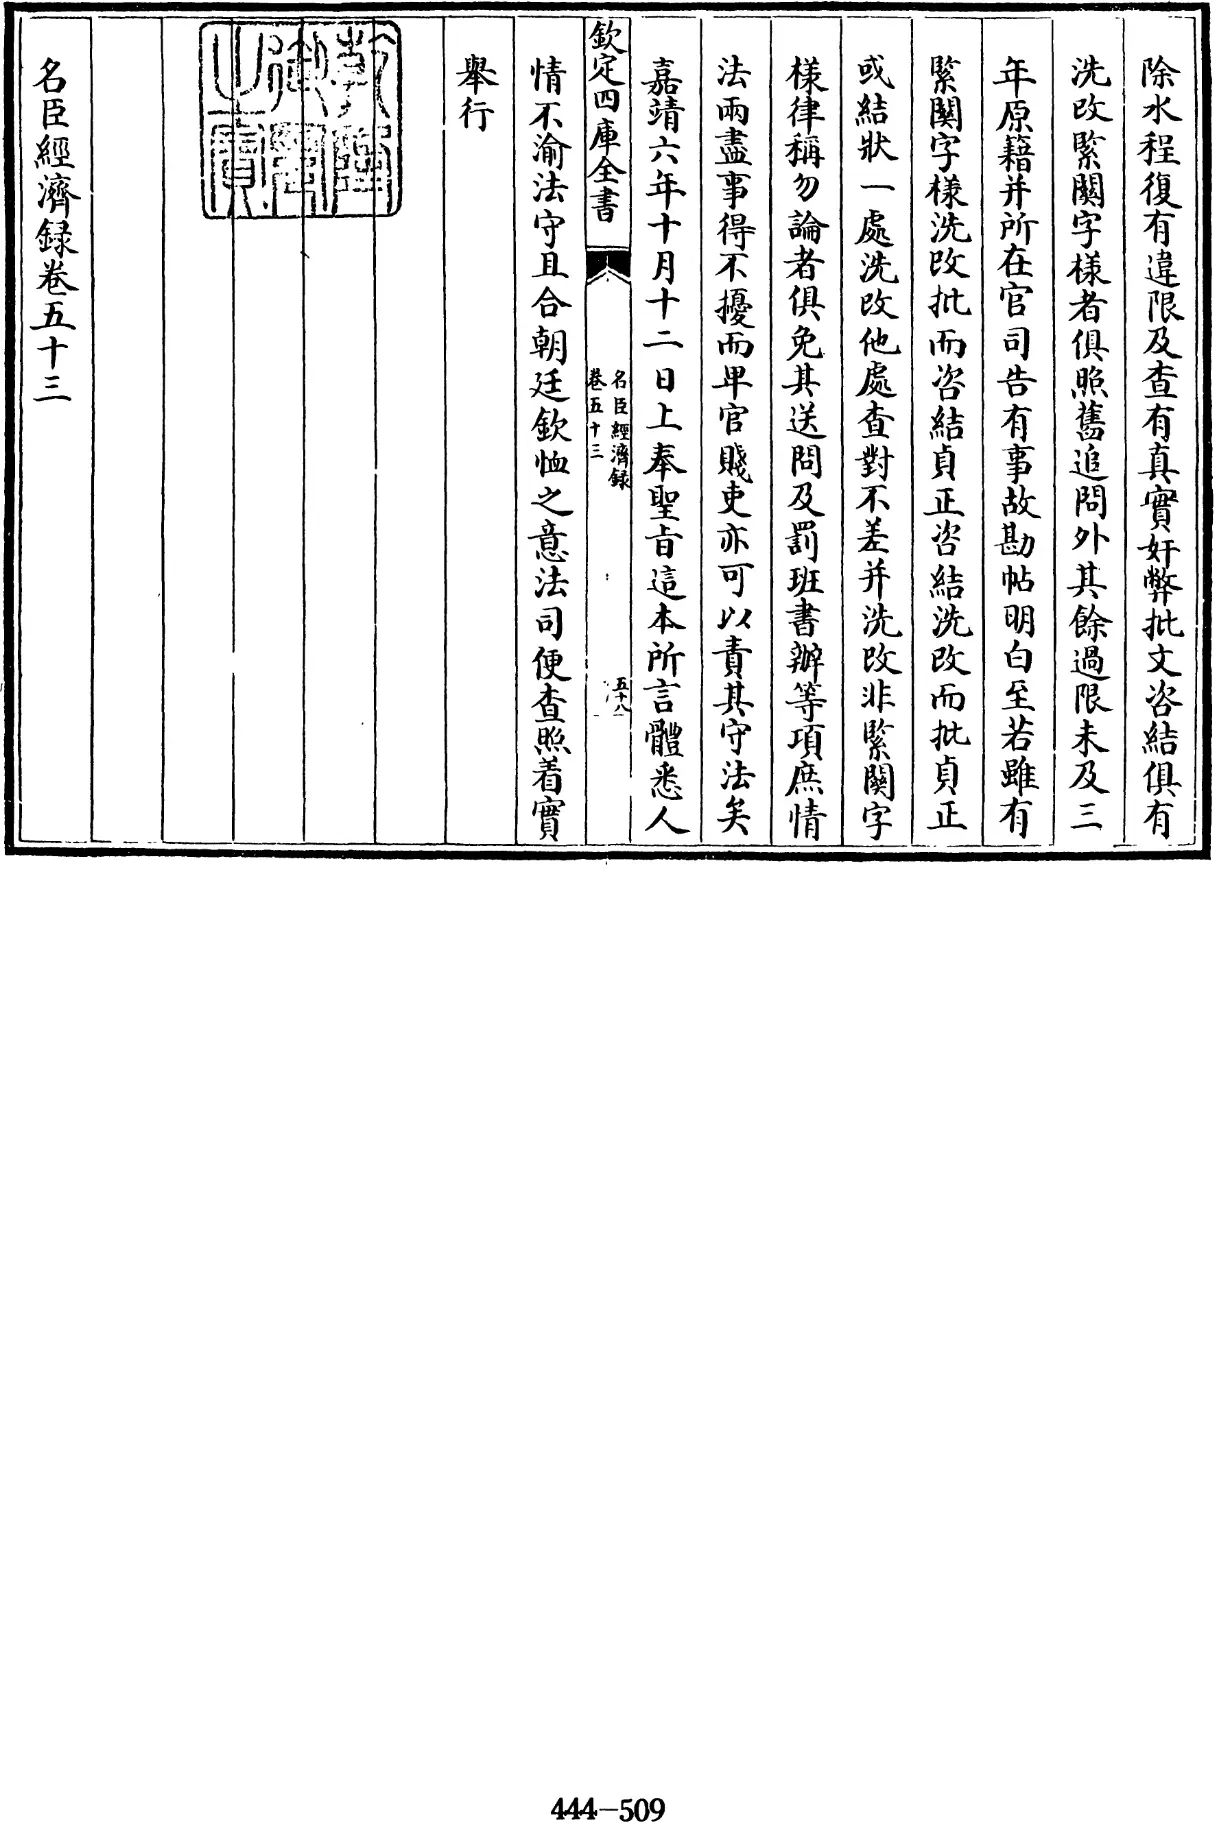 除水程復有違限及查有真實奸弊批文咨結俱有
洗改緊關字樣者俱照舊追問外其餘過限未及三
年原籍并所在官司告有事故勘帖明白至若雖有
緊關字樣洗改批而咨結貞正咨結洗改而批貞正
或結狀一處洗改他處查對不差并洗改非緊關字
樣律稱勿論者俱免其送問及罰班書辦等項庶情
法兩盡事得不擾而卑官賤吏亦可以責其守法矣
嘉靖六年十月十二日上奉聖旨這本所言體悉人
欽定四庫全書
名臣經濟録
卷五十三
五十八
情不渝法守且合朝廷欽恤之意法司便查照着實
舉行
乾隆御覽之寶
名臣經濟録卷五十三
444-509